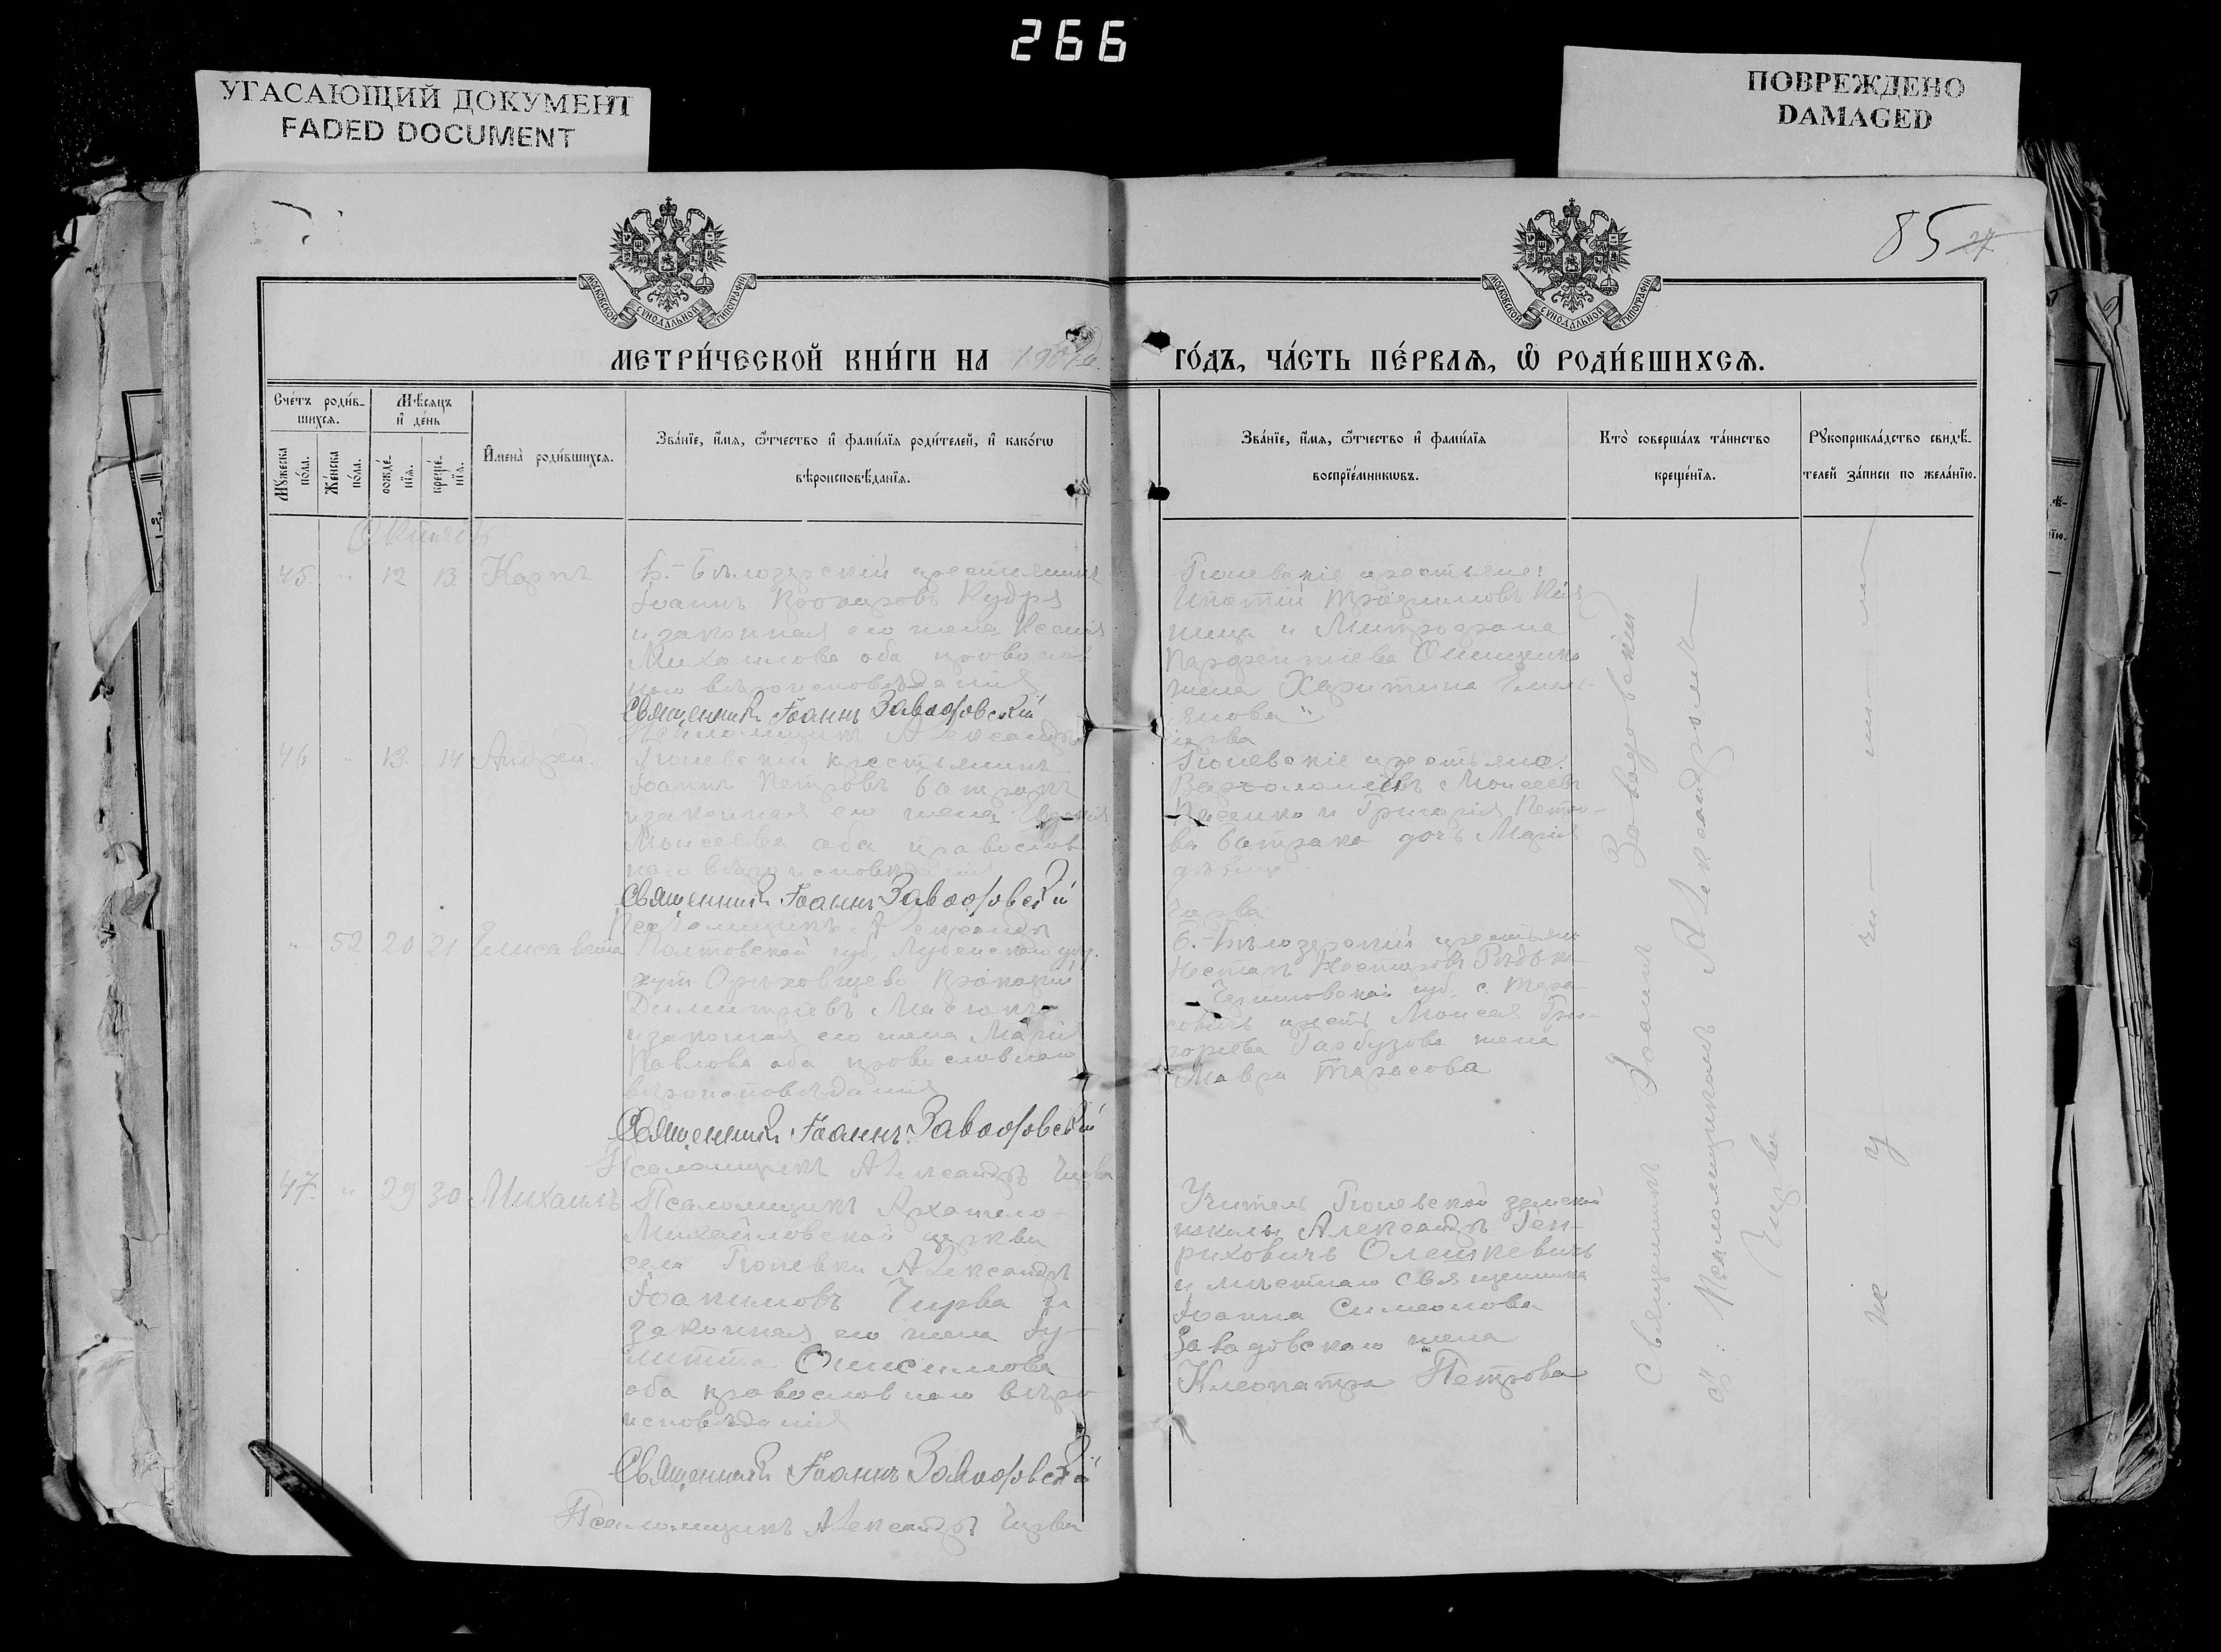 266
УГАСАЮЩИЙ ДОКУМЕНТ
FADED DOCUMENT
ПОВРЕЖДЕНО
DAMAGED
85 27
МОСКОВСКОЙ СѴНОДАЛЬНОЙ ТИПОГРАФІИ
МОСКОВСКОЙ СѴНОДАЛЬНОЙ ТИПОГРАФІИ
МЕТРИ́ЧЕСКОЙ КНИ́ГИ НА
ГО́ДЪ, ЧА́СТЬ ПЕ́РВАѦ, Ѡ҆ РОДИ́ВШИХСѦ.
Сче́тъ роди́в-
шихсѧ.
Мꙋ́жеска по́ла.
Же́нска по́ла.
Мѣ́сѧцъ
и҆ де́нь
рожде́-
нїѧ.
креще́-
нїѧ.
И҆мена̀ роди́вшихсѧ.
Зва́нїе, и҆́мѧ, ѻ҆́тчество и҆ фами́лїѧ роди́телей, и҆ како́гѡ
вѣроисповѣ́данїѧ.
Зва́нїе, и҆́мѧ, ѻ҆́тчество и҆ фами́лїѧ
воспрїе́мникѡвъ.
Кто̀ соверша́лъ та́инство
креще́нїѧ.
Рꙋкоприкла́дство свидѣ́-
телей за́писи по жела́нїю.
Октябрь
45. " 12 13 Карпъ
Б.-Бѣлозерскій крестьянинъ
Іоаннъ Кудря
и законная его жена Ксенія
Михаилова оба православ
наго вѣроисповѣданія
Священникъ Іоаннъ Завадовскій
Псаломщикъ Александръ
Чирва
крестьяне:
Ипатій Трофимовъ Кня
ница и Митрофана
Парфентіева Онищенко
жена Харитина Емель
янова
46 " 13 14 Андрей
крестьянинъ
Іоаннъ Петровъ Батракъ
и законная его жена Евдокія
Моисеева оба православ
наго вѣроисповѣданія
Священникъ Іоаннъ Завадовскій
Псаломщикъ Александръ
Чирва
крестьяне:
Варфоломей Моисеевъ
Писенко и Григорія Петро-
ва Батрака дочь Марія
дѣвица
" 52 20 21 Елисавета
Полтавской губ. Лубенскаго уѣз.
хут Ориховщево
Димитріевъ Масюкъ
и законная его жена Марія
Павлова оба православнаго
вѣроисповѣданія
Священникъ Іоаннъ Завадовскій
Псаломщикъ Александръ Чирва
Б.-Бѣлозерскій крестьян
Несторъ Несторовъ
Черниговской губ. с. Тара-
совичъ крест. Моисея Гри-
горьева Гарбузова жена
Мавра Тарасова
47. " 29 30 Михаилъ
Псаломщикъ Архангело-
Михайловской церкви
села Александръ
Іоакимовъ Чирва и
законная его жена Іу-
литта Онисимова
оба православнаго вѣро
исповѣданія
Священникъ Іоаннъ Завадовскій
Псаломщикъ Александръ Чирва
Учитель земской
школы Александръ Ген-
риховичъ Олешкевичъ
и мѣстнаго священника
Іоанна Симеонова
Завадовскаго жена
Клеопатра Петрова
Священникъ Іоаннъ Завадовскій
съ Псаломщикомъ Александромъ
Чирва